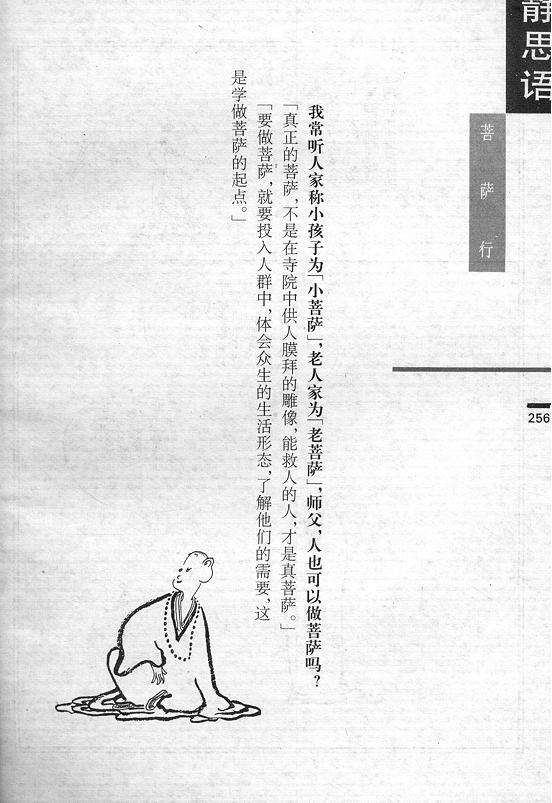 静思语
菩萨行
256
我常听人家称小孩子为「小菩萨」,老人家为「老菩萨」,师父,人也可以做菩萨吗?
「真正的菩萨,不是在寺院中供人膜拜的雕像,能救人的人,才是真菩萨。」
「要做菩萨,就要投入人群中,体会众生的生活形态,了解他们的需要,这
是学做菩萨的起点。」